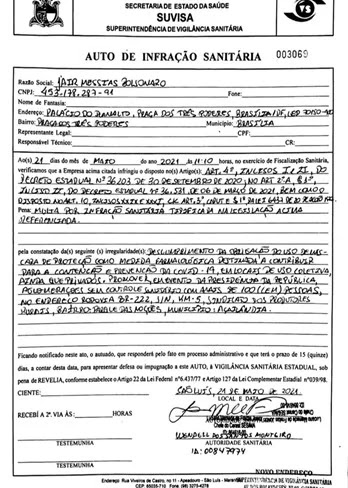 SECRETARIA DE ESTADO DA SAÚDE
SUVISA
SUPERINTENDÊNCIA DE VIGILÂNCIA SANITÁRIA
VS
AUTO DE INFRAÇÃO SANITÁRIA 003069
Razão Social: JAIR MESSIAS BOLSONARO
CNPJ: 453.178.287-91 Fone:
Nome de Fantasia:
Endereço: PALÁCIO DO PLANALTO, PRAÇA DOS TRÊS PODERES, BRASÍLIA/DF, CEP
Bairro: PRAÇA DOS TRÊS PODERES Município: BRASÍLIA
Representante Legal: CPF:
Responsável Técnico: CR:
Ao(s) 21 dias do mês de MAIO do ano 2021, às 11:10 horas, no exercício de Fiscalização Sanitária,
verificamos que a Empresa acima citada infringiu o disposto no(s) Artigo(s) ART. 4º, INCISOS I E II, DO
DECRETO ESTADUAL Nº 36.203 DE 30 DE SETEMBRO DE 2020, NO ART. 2º, § 1º,
INCISO II, DO DECRETO ESTADUAL Nº 36.531, DE 03 DE MARÇO DE 2021, BEM COMO O
DISPOSTO NO ART. 10,
Pena: MULTA POR INFRAÇÃO SANITÁRIA TIPIFICADA NA LEGISLAÇÃO ACIMA
REFERENCIADA.
pela constatação da(s) seguinte (s) irregularidade(s): DESCUMPRIMENTO DA OBRIGAÇÃO DO USO DE MÁS-
CARA DE PROTEÇÃO COMO MEDIDA FARMACOLÓGICA DESTINADA A CONTRIBUIR
PARA A CONTENÇÃO E PREVENÇÃO DA COVID-19, EM LOCAIS DE USO COLETIVO,
AINDA QUE PRIVADOS, PROMOVER, EM EVENTO DA PRESIDÊNCIA DA REPÚBLICA,
AGLOMERAÇÕES SEM CONTROLE SANITÁRIO COM MAIS DE 100 (CEM) PESSOAS,
NO ENDEREÇO RODOVIA BR-222, S/N, KM-5, SINDICATO DOS PRODUTORES
RURAIS, BAIRRO PARQUE DAS NAÇÕES, MUNICÍPIO AÇAILÂNDIA.
Ficando notificado neste ato, o autuado, que responderá pelo fato em processo administrativo e que terá o prazo de 15 (quinze)
dias, a contar desta data, para apresentar defesa ou impugnação a este AUTO, à VIGILÂNCIA SANITÁRIA ESTADUAL, sob
pena de REVELIA, conforme estabelece o Artigo 22 da Lei Federal nº 6.437/77 e Artigo 127 da Lei Complementar Estadual nº 039/98.
CLIENTE: SÃO LUÍS, 21 DE MAIO DE 2021
LOCAL E DATA
RECEBI A 2ª. VIA ÀS: HORAS
TESTEMUNHA AUTORIDADE SANITÁRIA
ID: 00847974
TESTEMUNHA
NOVO ENDEREÇO